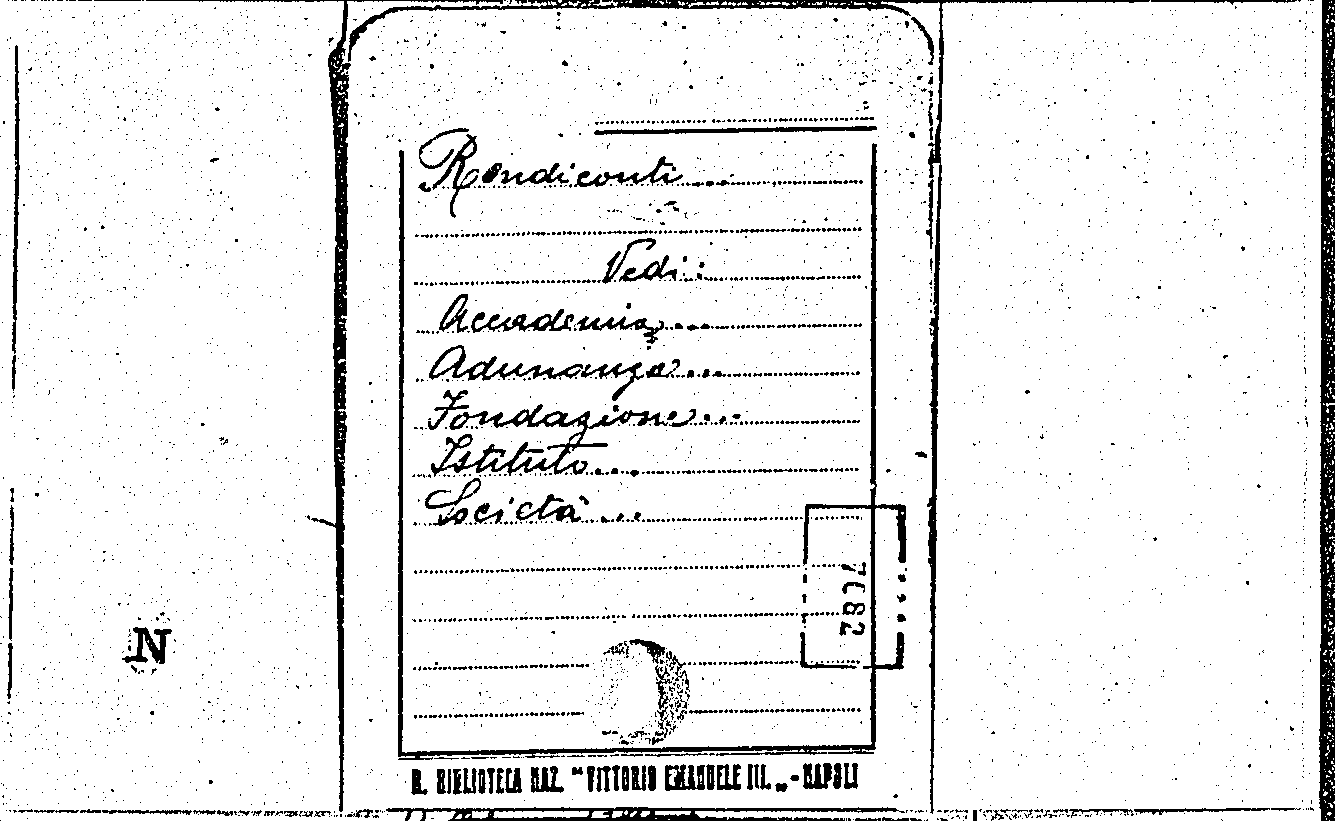 Rendiconti...
Vedi:
Accademia...
Adunanza...
Fondazione...
Istituto...
Società...
7082
N
R. BIBLIOTECA NAZ. "VITTORIO EMANUELE III.„ - NAPOLI